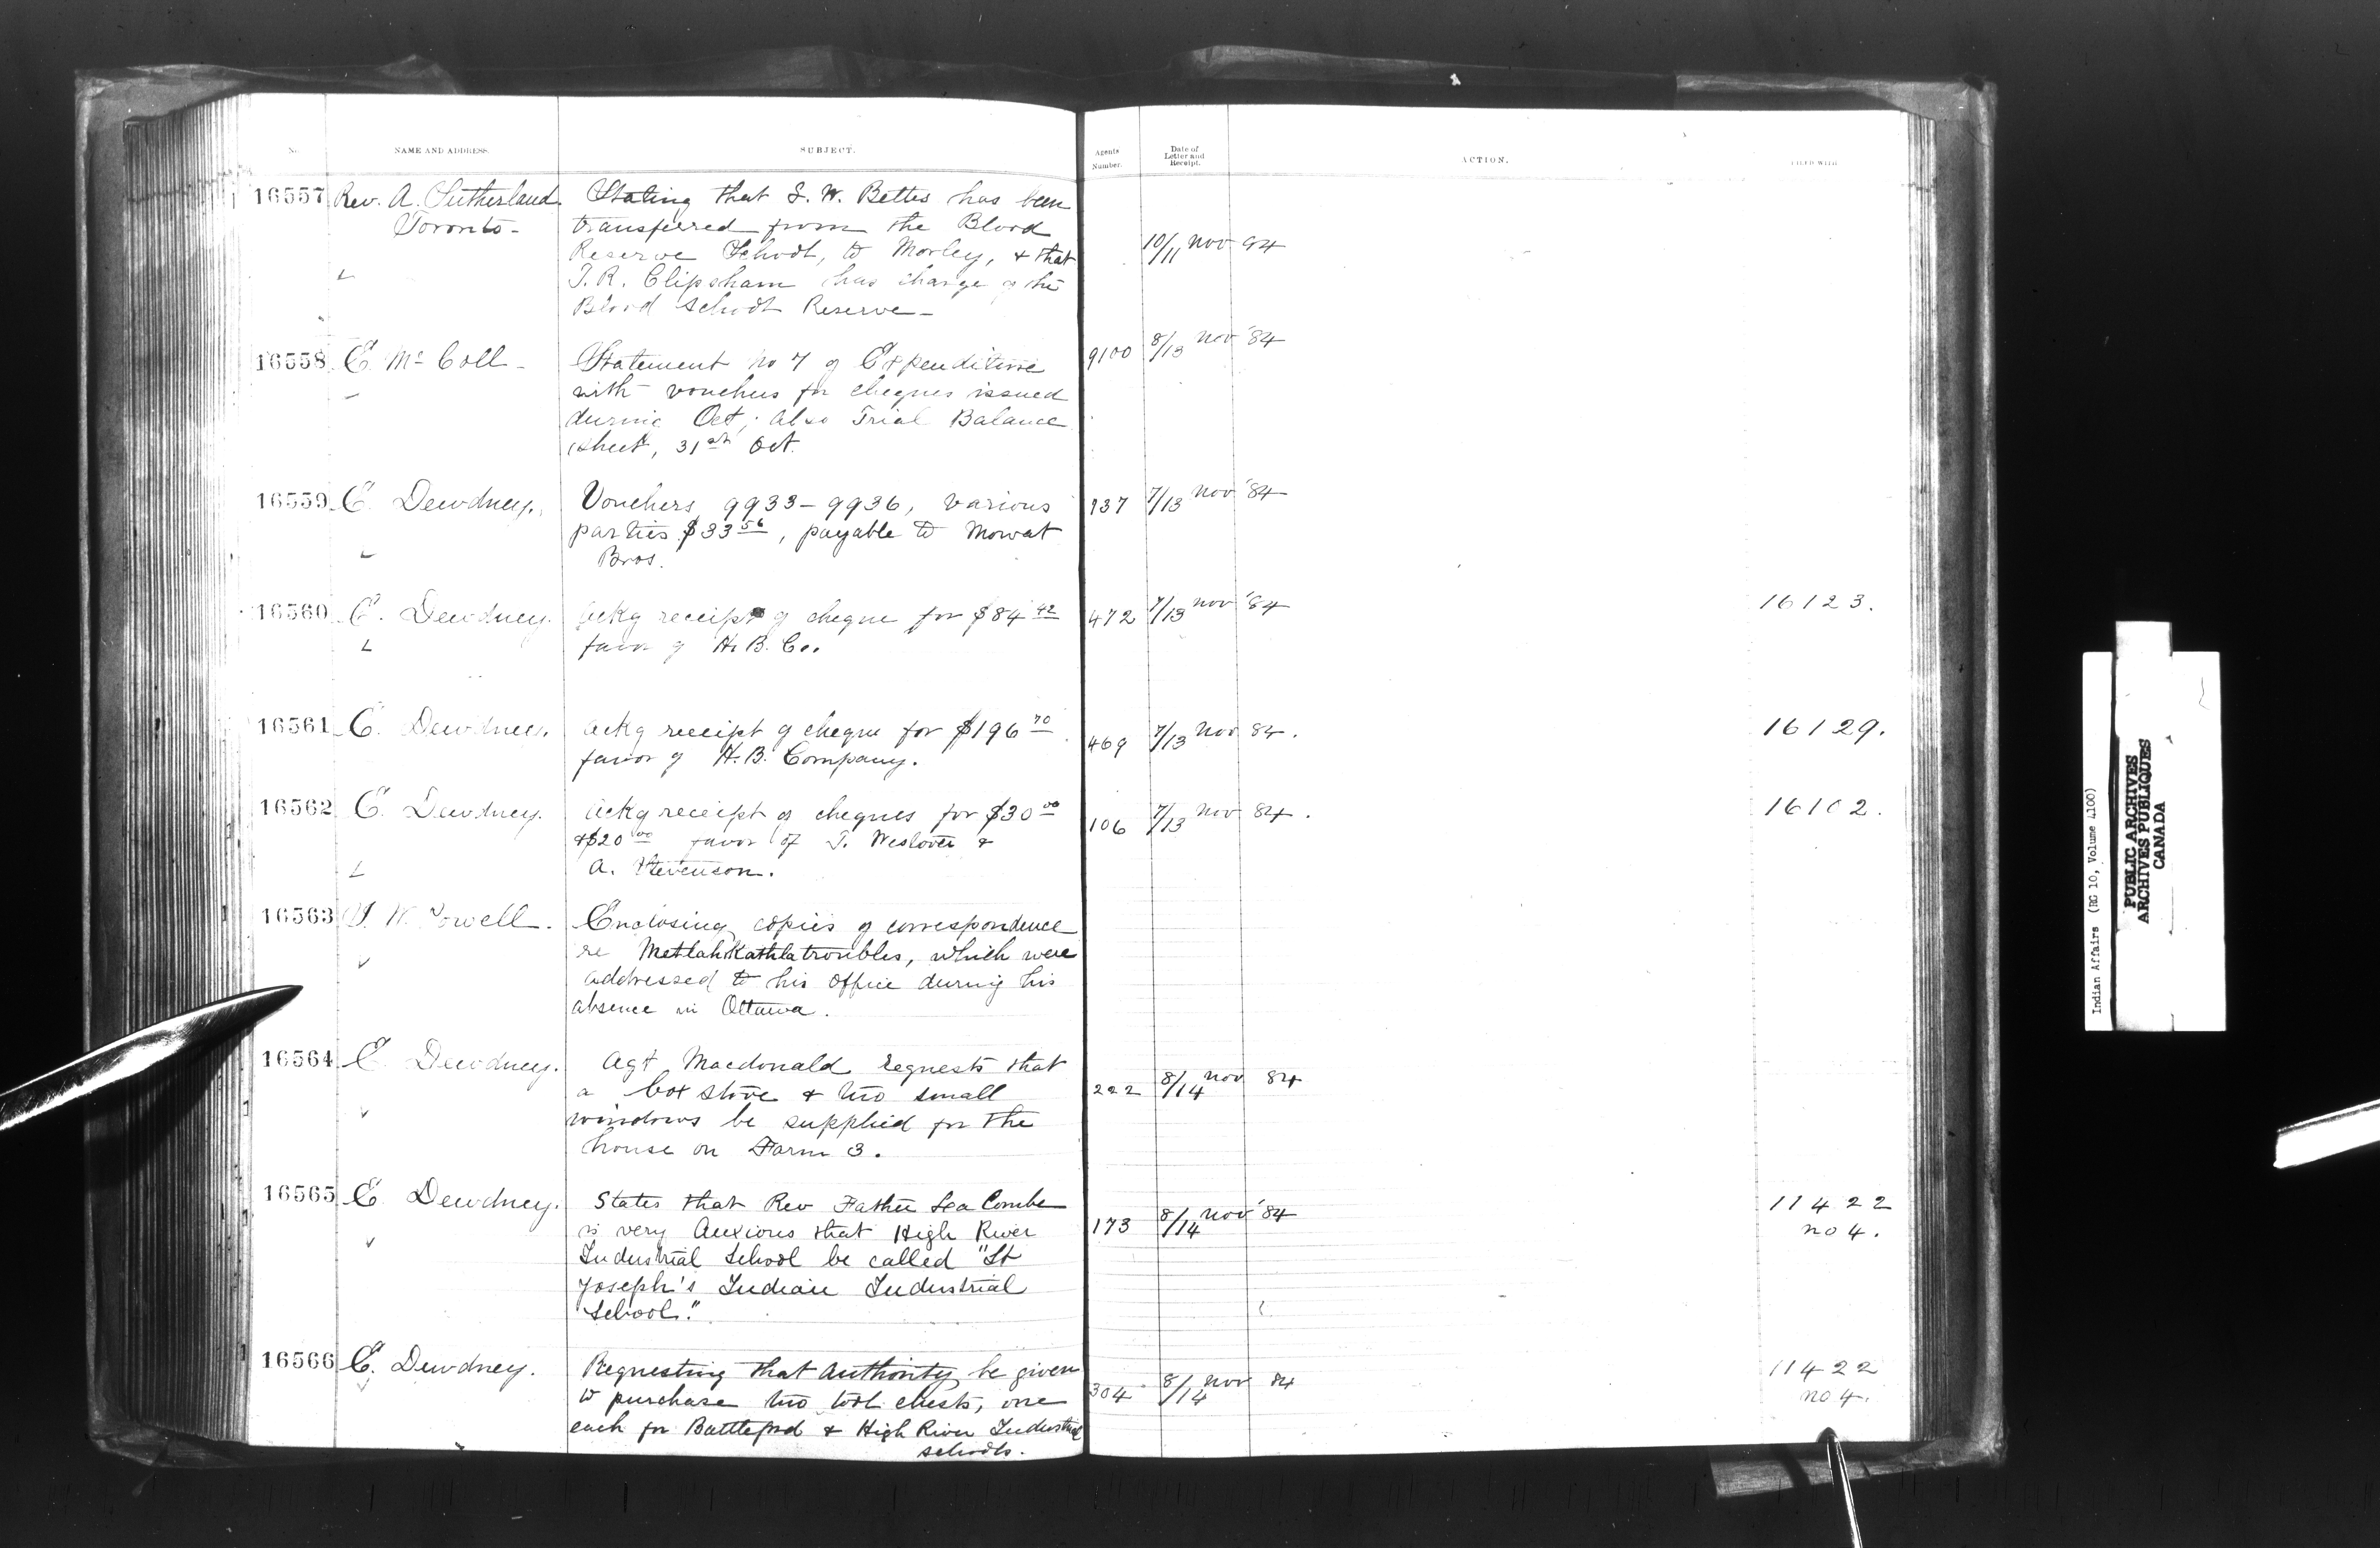 No. NAME AND ADDRESS. SUBJECT. Agents Number. Date of Letter and Receipt. ACTION. FILED WITH
16557 Rev. A. Sutherland. Stating that S. W. Bettes has been
Toronto - transferred from the Blood
Reserve School, to Morley, & that 10/11 Nov 84
T. R. Clipsham has charge of the
Blood School Reserve -
16558 E. McColl - Statement No 7 of Expenditure 9100 8/13 Nov '84
with vouchers for cheques issued
during Oct, also Trial Balance
sheet, 31st Oct.
16559 E. Dewdney. Vouchers 9933 - 9936, various 937 7/13 Nov '84
parties $33 56, payable to Mowat
Bros.
16560 E. Dewdney. Ackg receipt of cheque for $84 42 472 7/13 Nov '84 16123.
favor of H. B. Co.
16561 E. Dewdney. Ackg receipt of cheque for $196 70. 469 7/13 Nov 84. 16129.
favor of H. B. Company.
16562 E. Dewdney. Ackg receipt of cheques for $30 00 106 7/13 Nov 84. 16102.
& $20 00 favor of T. Weslover &
A. Stevenson.
16563 I. W. Powell. Enclosing copies of correspondence
re Metlahkathla troubles, which were
addressed to his office during his
absence in Ottawa.
16564 E. Dewdney. Agt Macdonald requests that
a box stove & two small 222 8/14 Nov 84
windows be supplied for the
house on Farm 3.
16565 E. Dewdney. States that Rev Father Lea Combe 173 8/14 Nov '84 11422
is very anxious that High River no 4.
Industrial School be called "St
Joseph's Indian Industrial
School."
16566 E. Dewdney. Requesting that authority be given 304 8/14 Nov 84 11422
to purchase two tool chests, one no 4.
each for Battleford & High River Industrial
schools.
Indian Affairs (RG 10, Volume 4100)
PUBLIC ARCHIVES
ARCHIVES PUBLIQUES
CANADA